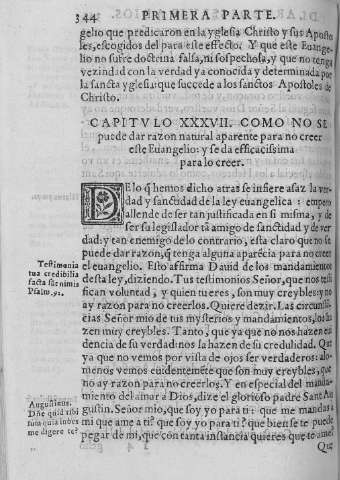 344 PRIMERA PARTE.
gelio que predicaron en la yglesia Christo y sus Aposto
les, escogidos del para este effecto. Y que este Euange-
lio no sufre doctrina falsa, ni sospechosa, y que no tenga
vezindad con la verdad ya conocida y determinada por
la sancta yglesia: que succede a los sanctos Apostoles de
Christo.
CAPITVLO XXXVII. COMO NO SE
puede dar razon natural aparente para no creer
este Euangelio: y se da efficacissima
para lo creer.
DElo q̃ hemos dicho atras se infiere asaz la ver-
dad y sanctidad de la ley euangelica: empero
allende de ser tan justificada en si misma, y de
ser su legislador tã amigo de sanctidad y de ver
dad: y tan enemigo de lo contrario, esta claro que no se
puede dar razon, q̃ tenga alguna aparẽcia para no creer
el euangelio. Esto affirma Dauid de los mandamientos
desta ley, diziendo. Tus testimonios Señor, que nos testi
fican voluntad, y quien tu eres, son muy creybles: y no
ay razon para no creerlos. Quiere dezir. Las circunstã
cias Señor mio de tus mysterios y mandamientos, los ha
zen muy creybles. Tanto, que ya que no nos hazen eui
dencia de su verdad: nos la hazen de su credulidad. Que
ya que no vemos por vista de ojos ser verdaderos: alo-
menos vemos euidentemẽte que son muy creybles, que
no ay razon para no creerlos. Y en especial del manda-
miento del amar a Dios, dize el glorioso padre Sant Au
gustin. Señor mio, que soy yo para ti: que me mandas a
mi que ame a ti? que soy yo para ti? que bien se te puede
pegar de mi, que con tanta instancia quieres que te ame?
Que
Testimonia
tua credibilia
facta sũt nimis
Psalm. 92.
Augustinus.
Dñe quid tibi
sum quia iubes
me digere te?